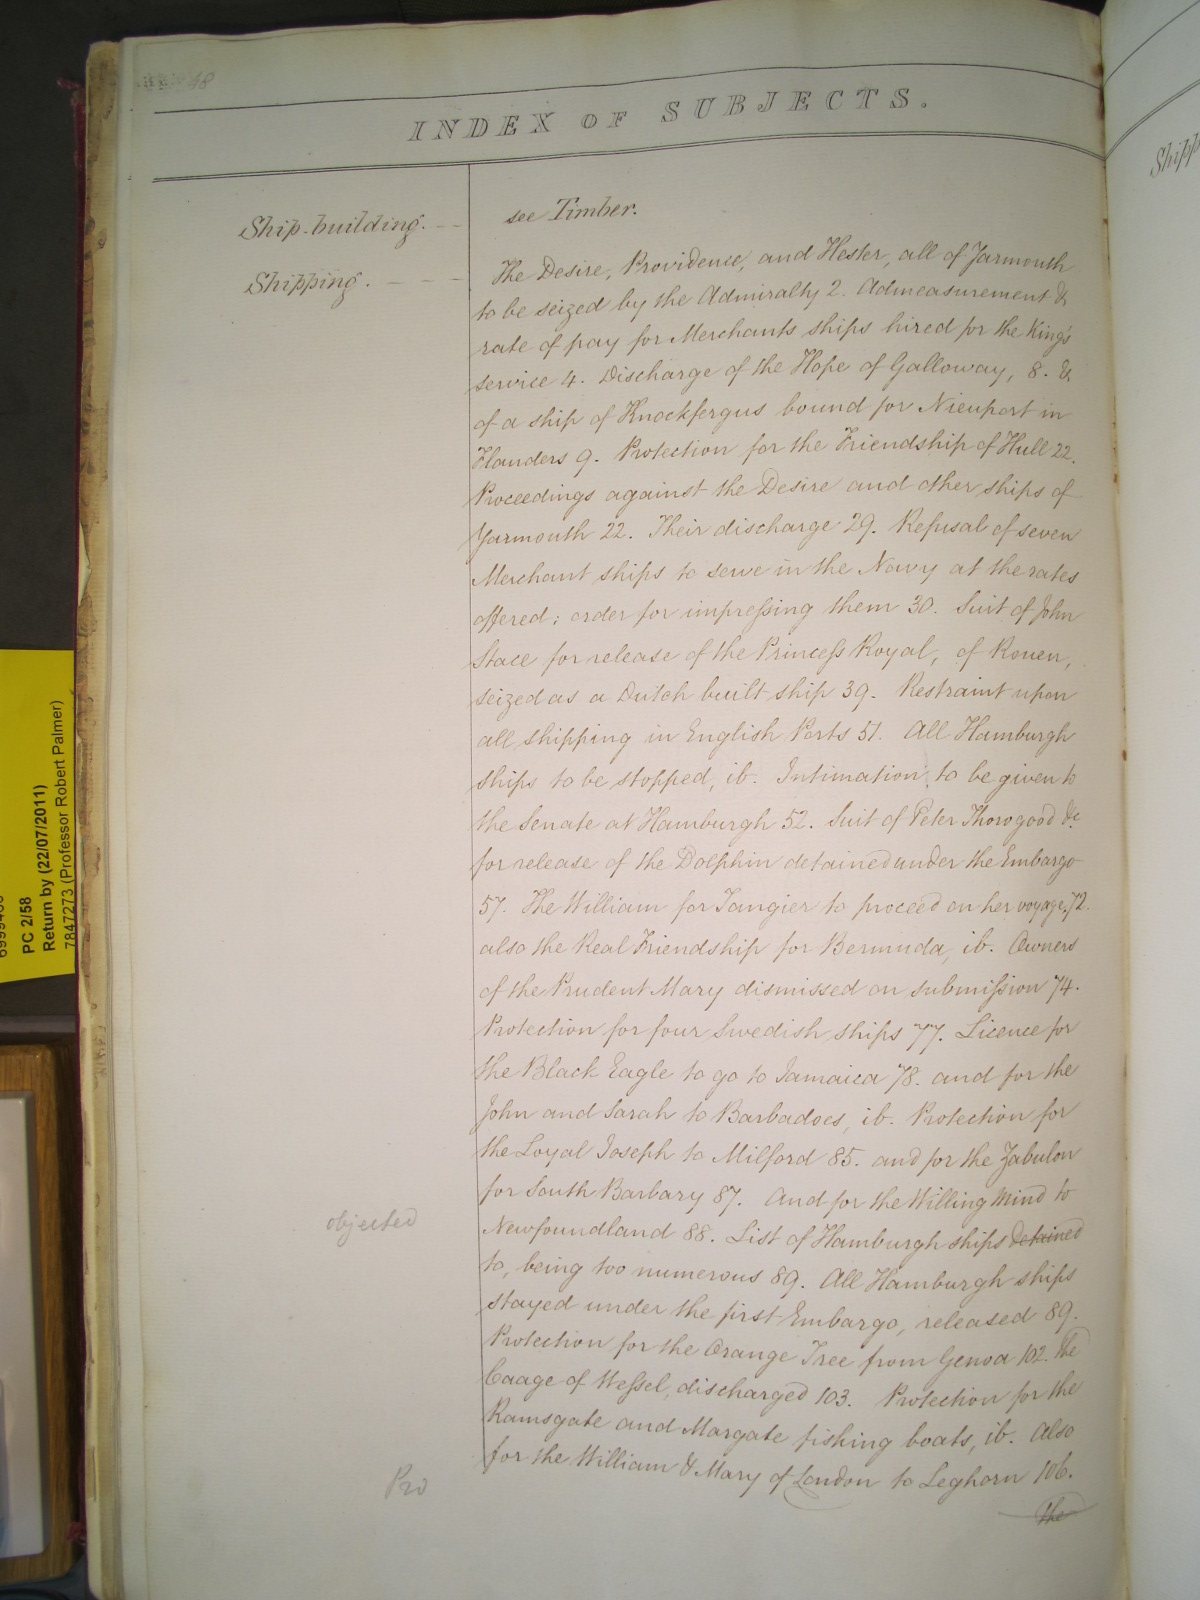 48
INDEX OF SUBJECTS.
Ship-building. see Timber.
Shipping. The Desire, Providence, and Hester, all of Yarmouth
to be seized by the Admiralty 2. Admeasurement &
rate of pay for Merchants ships hired for the King's
service 4. Discharge of the Hope of Galloway, 8. &
of a ship of Knockfergus bound for Nieuport in
Flanders 9. Protection for the Friendship of Hull 22.
Proceedings against the Desire and other ships of
Yarmouth 22. Their discharge 29. Refusal of seven
Merchant ships to serve in the Navy at the rates
offered; order for impressing them 30. Suit of John
Stace for release of the Princess Royal, of Rouen,
seized as a Dutch built ship 39. Restraint upon
all shipping in English Ports 51. All Hamburgh
ships to be stopped, ib. Intimation to be given to
the Senate at Hamburgh 52. Suit of Peter Thorogood &c
for release of the Dolphin detained under the Embargo
57. The William for Tangier to proceed on her voyage, 72.
also the Real Friendship for Bermuda, ib. Owners
of the Prudent Mary dismissed on submission 74.
Protection for four Swedish ships 77. Licence for
the Black Eagle to go to Jamaica 78. and for the
John and Sarah to Barbadoes, ib. Protection for
the Loyal Joseph to Milford 85. and for the Zabulon
for South Barbary 87. And for the Willing Mind to
objected
Newfoundland 88. List of Hamburgh ships detained
to, being too numerous 89. All Hamburgh ships
stayed under the first Embargo, released 89.
Protection for the Orange Tree from Genoa 102. The
Caage of Wessel, discharged 103. Protection for the
Ramsgate and Margate fishing boats, ib. Also
for the William & Mary of London to Leghorn 106.
Pro
The
Shipp
PC 2/58
Return by (22/07/2011)
7847273 (Professor Robert Palmer)